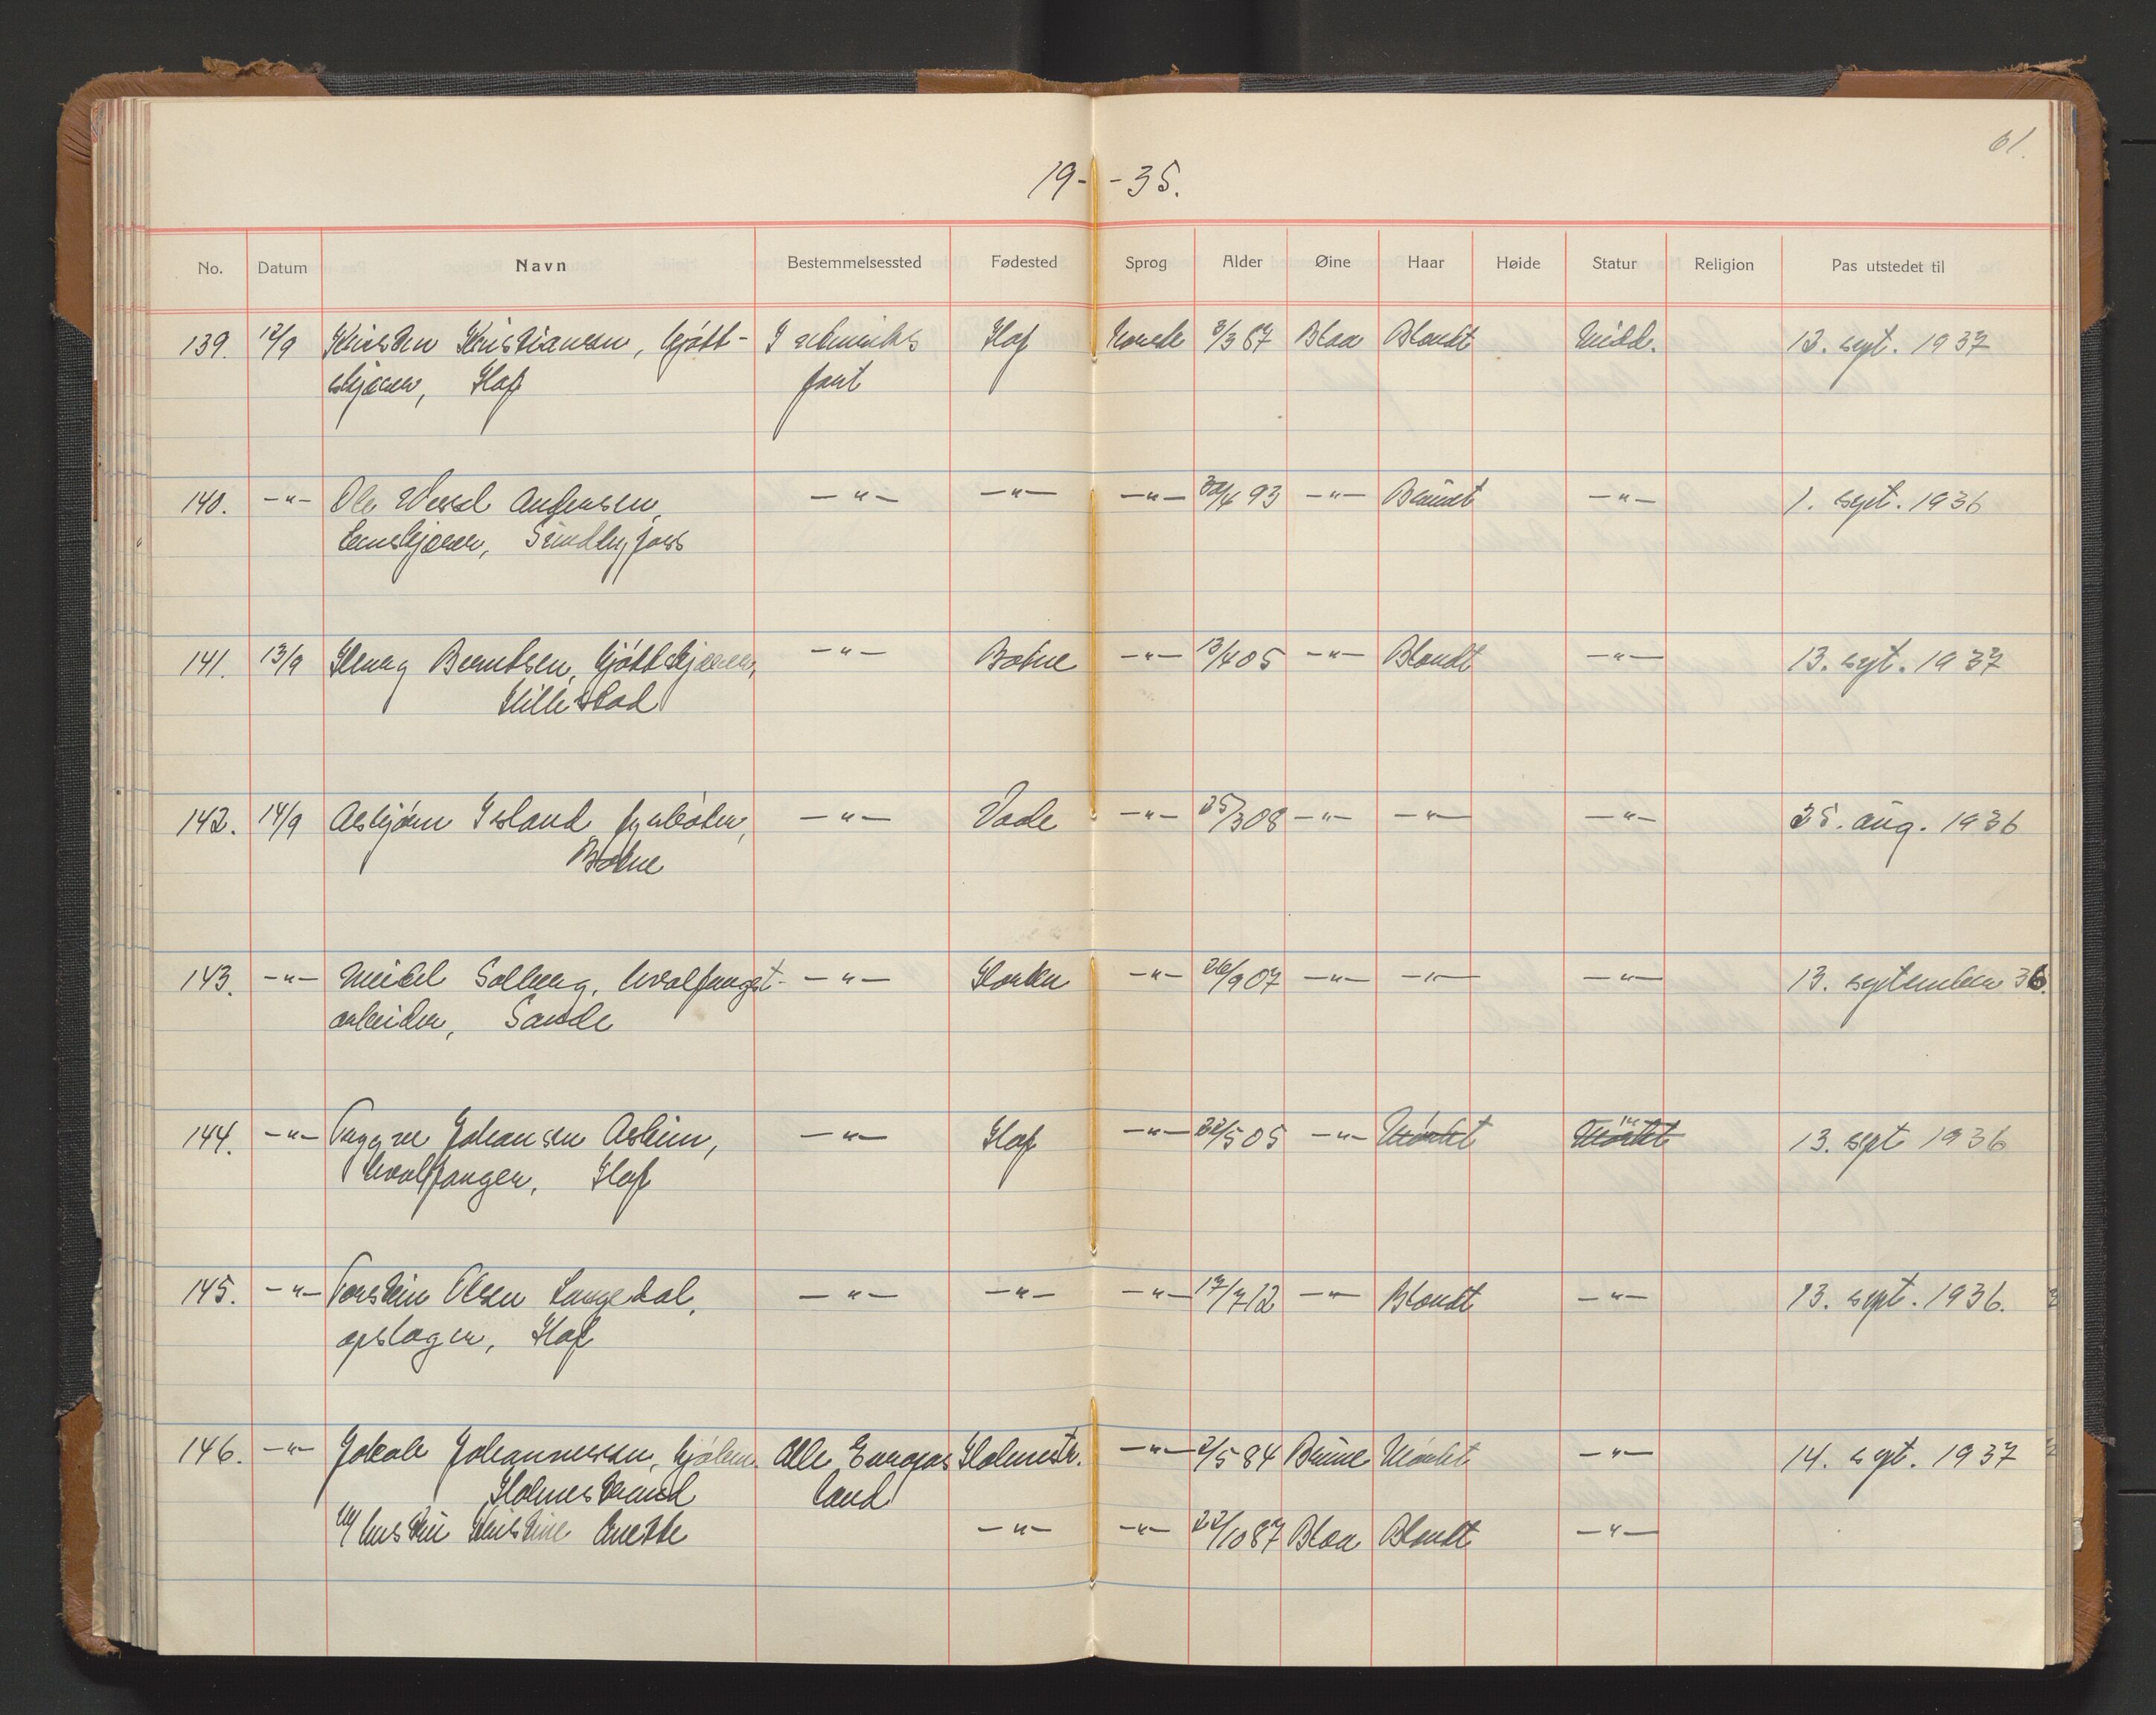 61.
19--35.
No. Datum Navn Bestemmelsessted Fødested Sprog Alder Øine Haar Høide Statur Religion Pas utstedet til
139. 12/9 Kristen Kristiansen, kjøtt- Hof Norsk 3/3 87 Blaa Blondt Midd. 12. sept. 1937
skjærer, Hof fart
140. -"- Ole Wessel Andersen, -"- -"- -"- 30/4 93 -"- Brunt -"- 1. sept. 1936
Sundbyfoss
141. 13/9 Henry Berntsen, kjøttskjærer, -"- Botne -"- 13/4 05 -"- Blondt -"- 13. sept. 1937
Hillestad
142. 14/9 Asbjørn Island, fyrbøter, -"- Vaale -"- 25/3 08 -"- -"- -"- 25. aug. 1936
Botne
143. -"- Mikel Solberg, hvalfangst- -"- -"- 26/9 07 -"- -"- -"- 13. september 36.
arbeider, Sande
144. -"- Trygve Johansen Askim, -"- Hof -"- 22/5 05 -"- Mørkt -"- Mørkt 13. sept 1936
hvalfanger, Hof
145. -"- Torstein Olsen Langedal, -"- -"- -"- 17/7 12 -"- Blondt -"- 13. sept. 1936.
opslager, Hof
146. -"- Jakob Johannessen, Alle Europas Holmestr. -"- 2/5 84 Brune Mørkt -"- 14. sept. 1937
Holmestrand land
m/ hustru Kristine Anette -"- -"- 22/10 87 Blaa Blondt -"-